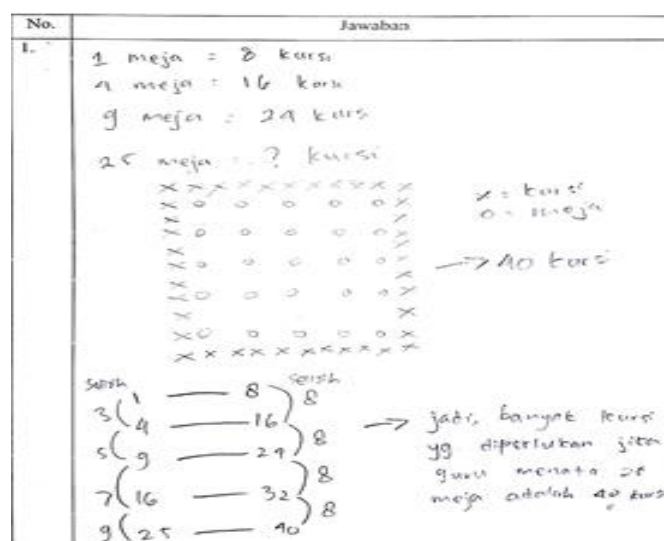 No. Jawaban
1. 1 meja = 8 kursi
4 meja = 16 kursi
9 meja = 24 kursi
25 meja = ? kursi
x x x x x x x x x x x
x o o o o o x
x o o o o o x
x o o o o o x
x o o o o o x
x o o o o o x
x x x x x x x x x x x
x = kursi
o = meja
→ 40 kursi
selisih selisih
1 — 8
3 8
4 — 16
5 8
9 — 24
7 8
16 — 32
9 8
25 — 40
→ jadi, banyak kursi
yg diperlukan jika
guru menata 25
meja adalah 40 kursi